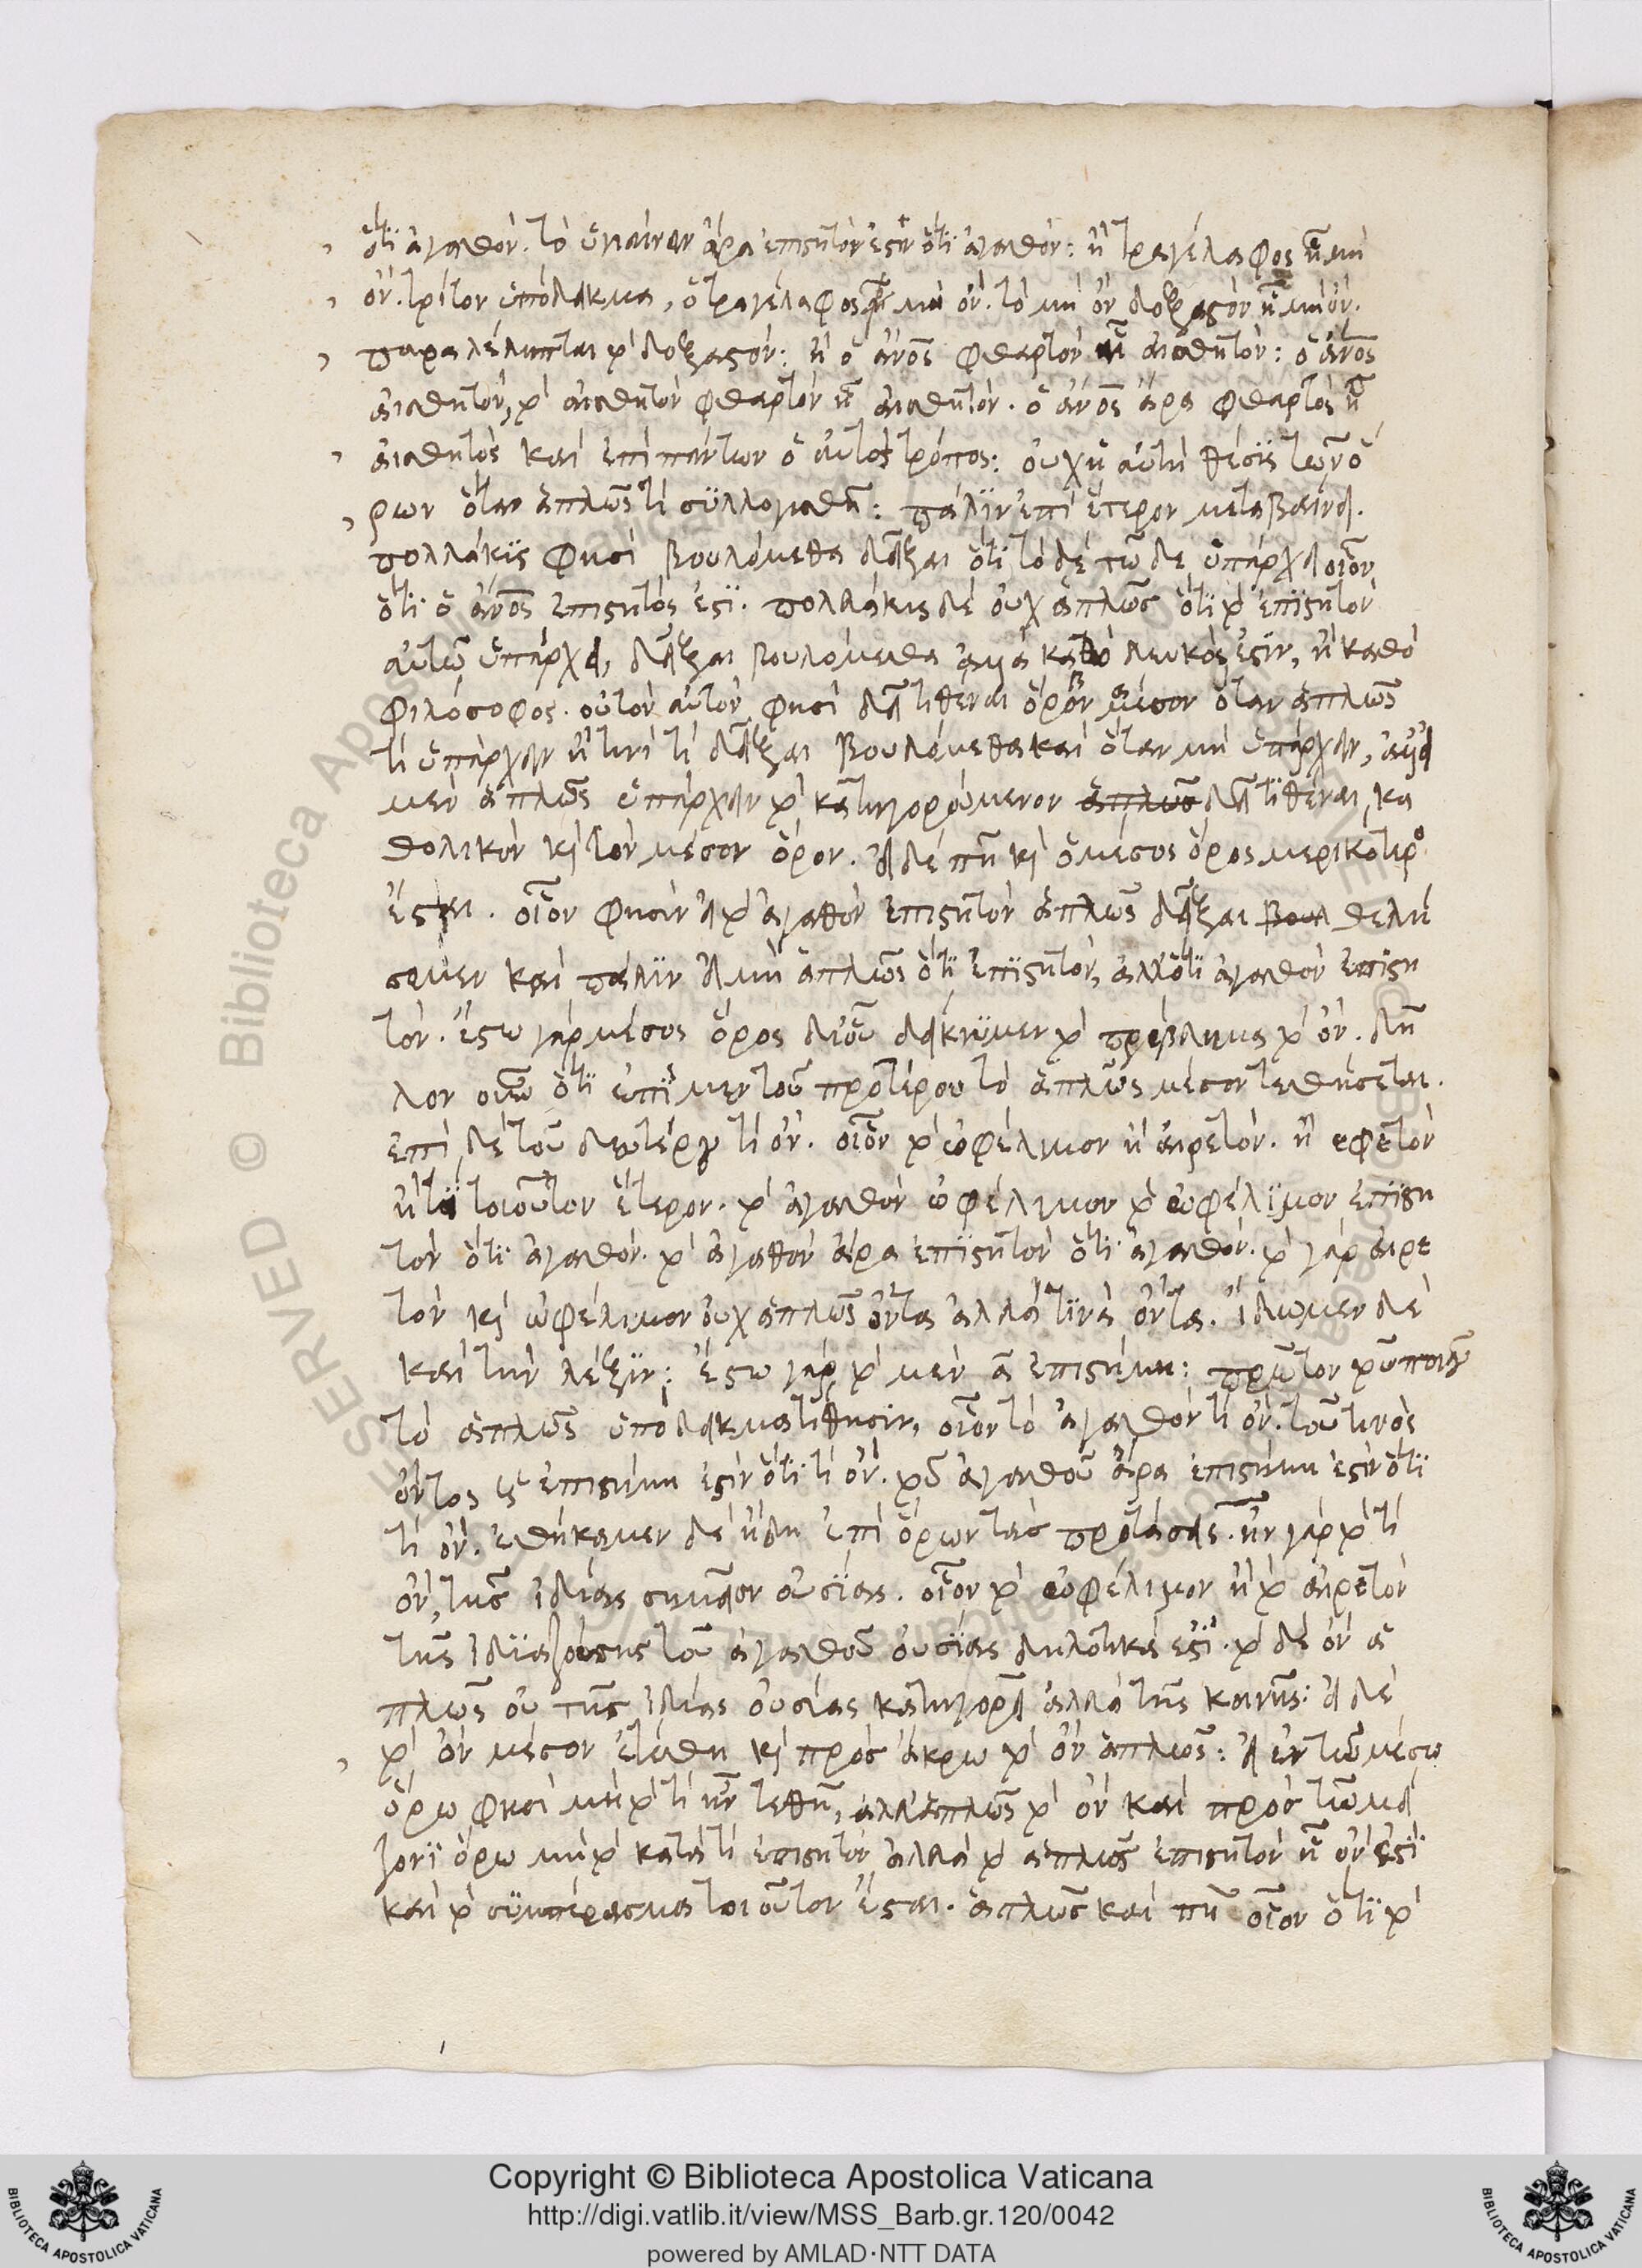 ὅτι ἀγαθόν. τὸ ὑγιαίνειν ἄρα ἐπιστητόν ἐστιν ὅτι ἀγαθόν: ἢ τραγέλαφος ᾗ μὴ
ὄν. τρίτον ὑπόδειγμα, ὁ τραγέλαφος μὴ ὄν. τὸ μὴ ὂν δοξαστὸν ᾗ μὴ ὄν.
παραλέλειπται τὸ δοξαστόν: ἢ ὁ ἄνος φθαρτὸν ᾗ αἰσθητόν: ὁ ἄνος
αἰσθητόν, τὸ αἰσθητὸν φθαρτὸν ᾗ αἰσθητόν. ὁ ἄνος ἄρα φθαρτὸς ᾗ
αἰσθητὸς καὶ ἐπὶ πάντων ὁ αὐτὸς τρόπος: οὐχ ἡ αὐτὴ θέσις τῶν ὅ
ρων ὅταν ἁπλῶς τι συλλογισθῇ: πάλιν ἐπὶ ἕτερον μεταβαίνει.
πολλάκις φησὶ βουλόμεθα δεῖξαι ὅτι τόδε τῷδε ὑπάρχει οἷον
ὅτι ὁ ἄνος ἐπιστητός ἐστι. πολλάκις δὲ οὐχ ἁπλῶς ὅτι τὸ ἐπιστητὸν
αὐτῷ ὑπάρχει, δεῖξαι βουλόμεθα ἀλλὰ καθὸ λευκός ἐστιν, ἢ καθὸ
φιλόσοφος. οὐ τὸν αὐτόν φησι δεῖ τιθέναι ὅρον μέσον ὅταν ἁπλῶς
τι ὑπάρχειν ἢ τινί τι δεῖξαι βουλόμεθα καὶ ὅταν μὴ ὑπάρχειν, ἀλλ' εἰ
μὲν ἁπλῶς ὑπάρχειν τὸ κατηγορούμενον ἁπλῶς δεῖ τιθέναι, κα
θολικὸν κὶ τὸν μέσον ὅρον. εἰ δὲ πῇ κὶ ὁ μέσος ὅρος μερικότερο
ἔσται. οἷόν φησιν εἰ τὸ ἀγαθὸν ἐπιστητὸν ἁπλῶς δεῖξαι βουλ θελή
σομεν καὶ πάλιν εἰ μὴ ἁπλῶς ὅτι ἐπιστητόν, ἀλλ' ὅτι ἀγαθὸν ἐπιστη
τόν. ἔστω γὰρ μέσος ὅρος δι' οὗ δείκνυμεν τὸ πρόβλημα τὸ ὄν. δῆ
λον οὖν ὅτι ἐπὶ μὲν τοῦ προτέρου τὸ ἁπλῶς μέσον τεθήσεται.
ἐπὶ δὲ τοῦ δευτέρου τὶ ὄν. οἷον τὸ ὠφέλιμον ἢ αἱρετόν. ἢ ἐφετὸν
ἢ τι τοιοῦτον ἕτερον. τὸ ἀγαθὸν ὠφέλιμον τὸ ὠφέλιμον ἐπιστη
τὸν ὅτι ἀγαθόν. τὸ ἀγαθὸν ἄρα ἐπιστητὸν ὅτι ἀγαθόν. τὸ γὰρ αἱρε
τὸν κὶ ὠφέλιμον οὐχ ἁπλῶς ὄντα ἀλλὰ τινὰ ὄντα. ἴδωμεν δὲ
καὶ τὴν λέξιν: ἔστω γὰρ τὸ μὲν α ἐπιστήμη: πρῶτον
τὸ ἁπλῶς ὑπόδειγμα τίθησιν, οἷον τὸ ἀγαθόν τι ὄν. τοῦ τινὸς
ὄντος ἐπιστήμη ἐστὶν ὅτι τὶ ὄν. τοῦ ἀγαθοῦ ἄρα ἐπιστήμη ἐστὶν ὅτι
τὶ ὄν. ἐθήκαμεν δὲ ἤδη ἐπὶ ὅρων τὰς προτάσεις. ἦν γὰρ τὸ τὶ
ὄν, τῆς ἰδίας σημεῖον οὐσίας. οἷον τὸ ὠφέλιμον ἢ τὸ αἱρετὸν
τῆς ἰδιαζούσης τοῦ ἀγαθοῦ οὐσίας δηλωτικά ἐστι. τὸ δὲ ὂν ἁ
πλῶς οὐ τῆς ἰδίας οὐσίας κατηγορεῖ ἀλλὰ τῆς κοινῆς: εἰ δὲ
τὸ ὂν μέσον ἐτέθη κὶ πρὸς ἄκρω τὸ ὂν ἁπλῶς: εἰ ἐν τῷ μέσῳ
ὅρῳ φησὶ μὴ τὸ τὶ ὂν τεθῇ, ἀλλ' ἁπλῶς τὸ ὂν καὶ πρὸς τῷ μεί
ζονι ὅρῳ μὴ τὸ κατά τι ἐπιστητὸν ἀλλὰ τὸ ἁπλῶς ἐπιστητὸν ᾗ ὄν ἐστι
καὶ τὸ συμπέρασμα τοιοῦτον ἔσται. ἁπλῶς καὶ πῇ οἷον ὅτι τὸ
Copyright © Biblioteca Apostolica Vaticana
http://digi.vatlib.it/view/MSS_Barb.gr.120/0042
powered by AMLAD·NTT DATA